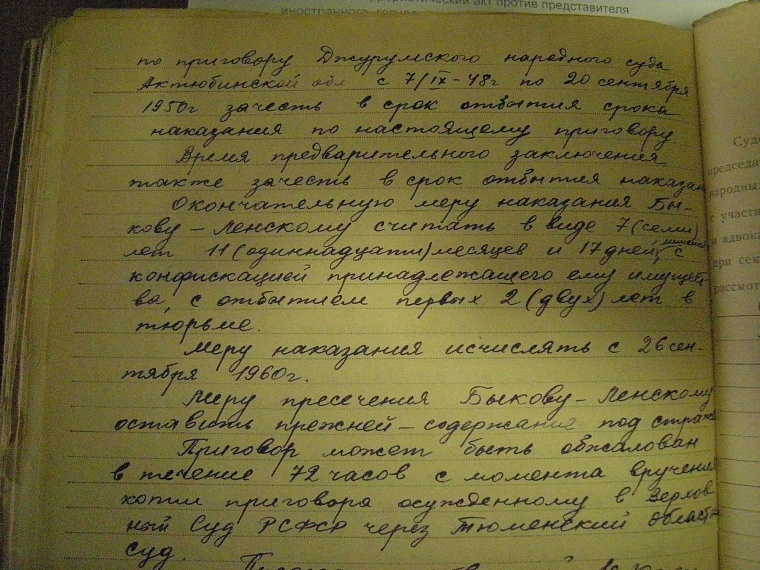 террористический акт против представителя
по приговору Джурумского народного суда
Актюбинской обл с 7/IX-48г по 20 сентября
1950г зачесть в срок отбытия срока
наказания по настоящему приговору.
Время предварительного заключения
также зачесть в срок отбытия наказан
Окончательную меру наказания Бы-
кову-Ленскому считать в виде 7 (семи)
лет 11 (одиннадцати) месяцев и 17 дней с
конфискацией принадлежащего ему имущест
ва, с отбытием первых 2 (двух) лет в
тюрьме.
Меру наказания исчислять с 26 сен-
тября 1960г.
Меру пресечения Быкову-Ленскому
оставить прежней - содержание под страже
Приговор может быть обжалован
в течение 72 часов с момента вручения
копии приговора осужденному в Верхов
ный Суд РСФСР через Тюменский област
суд.
Суд
председа
народны
с участи
и адвока
при сек
рассмот